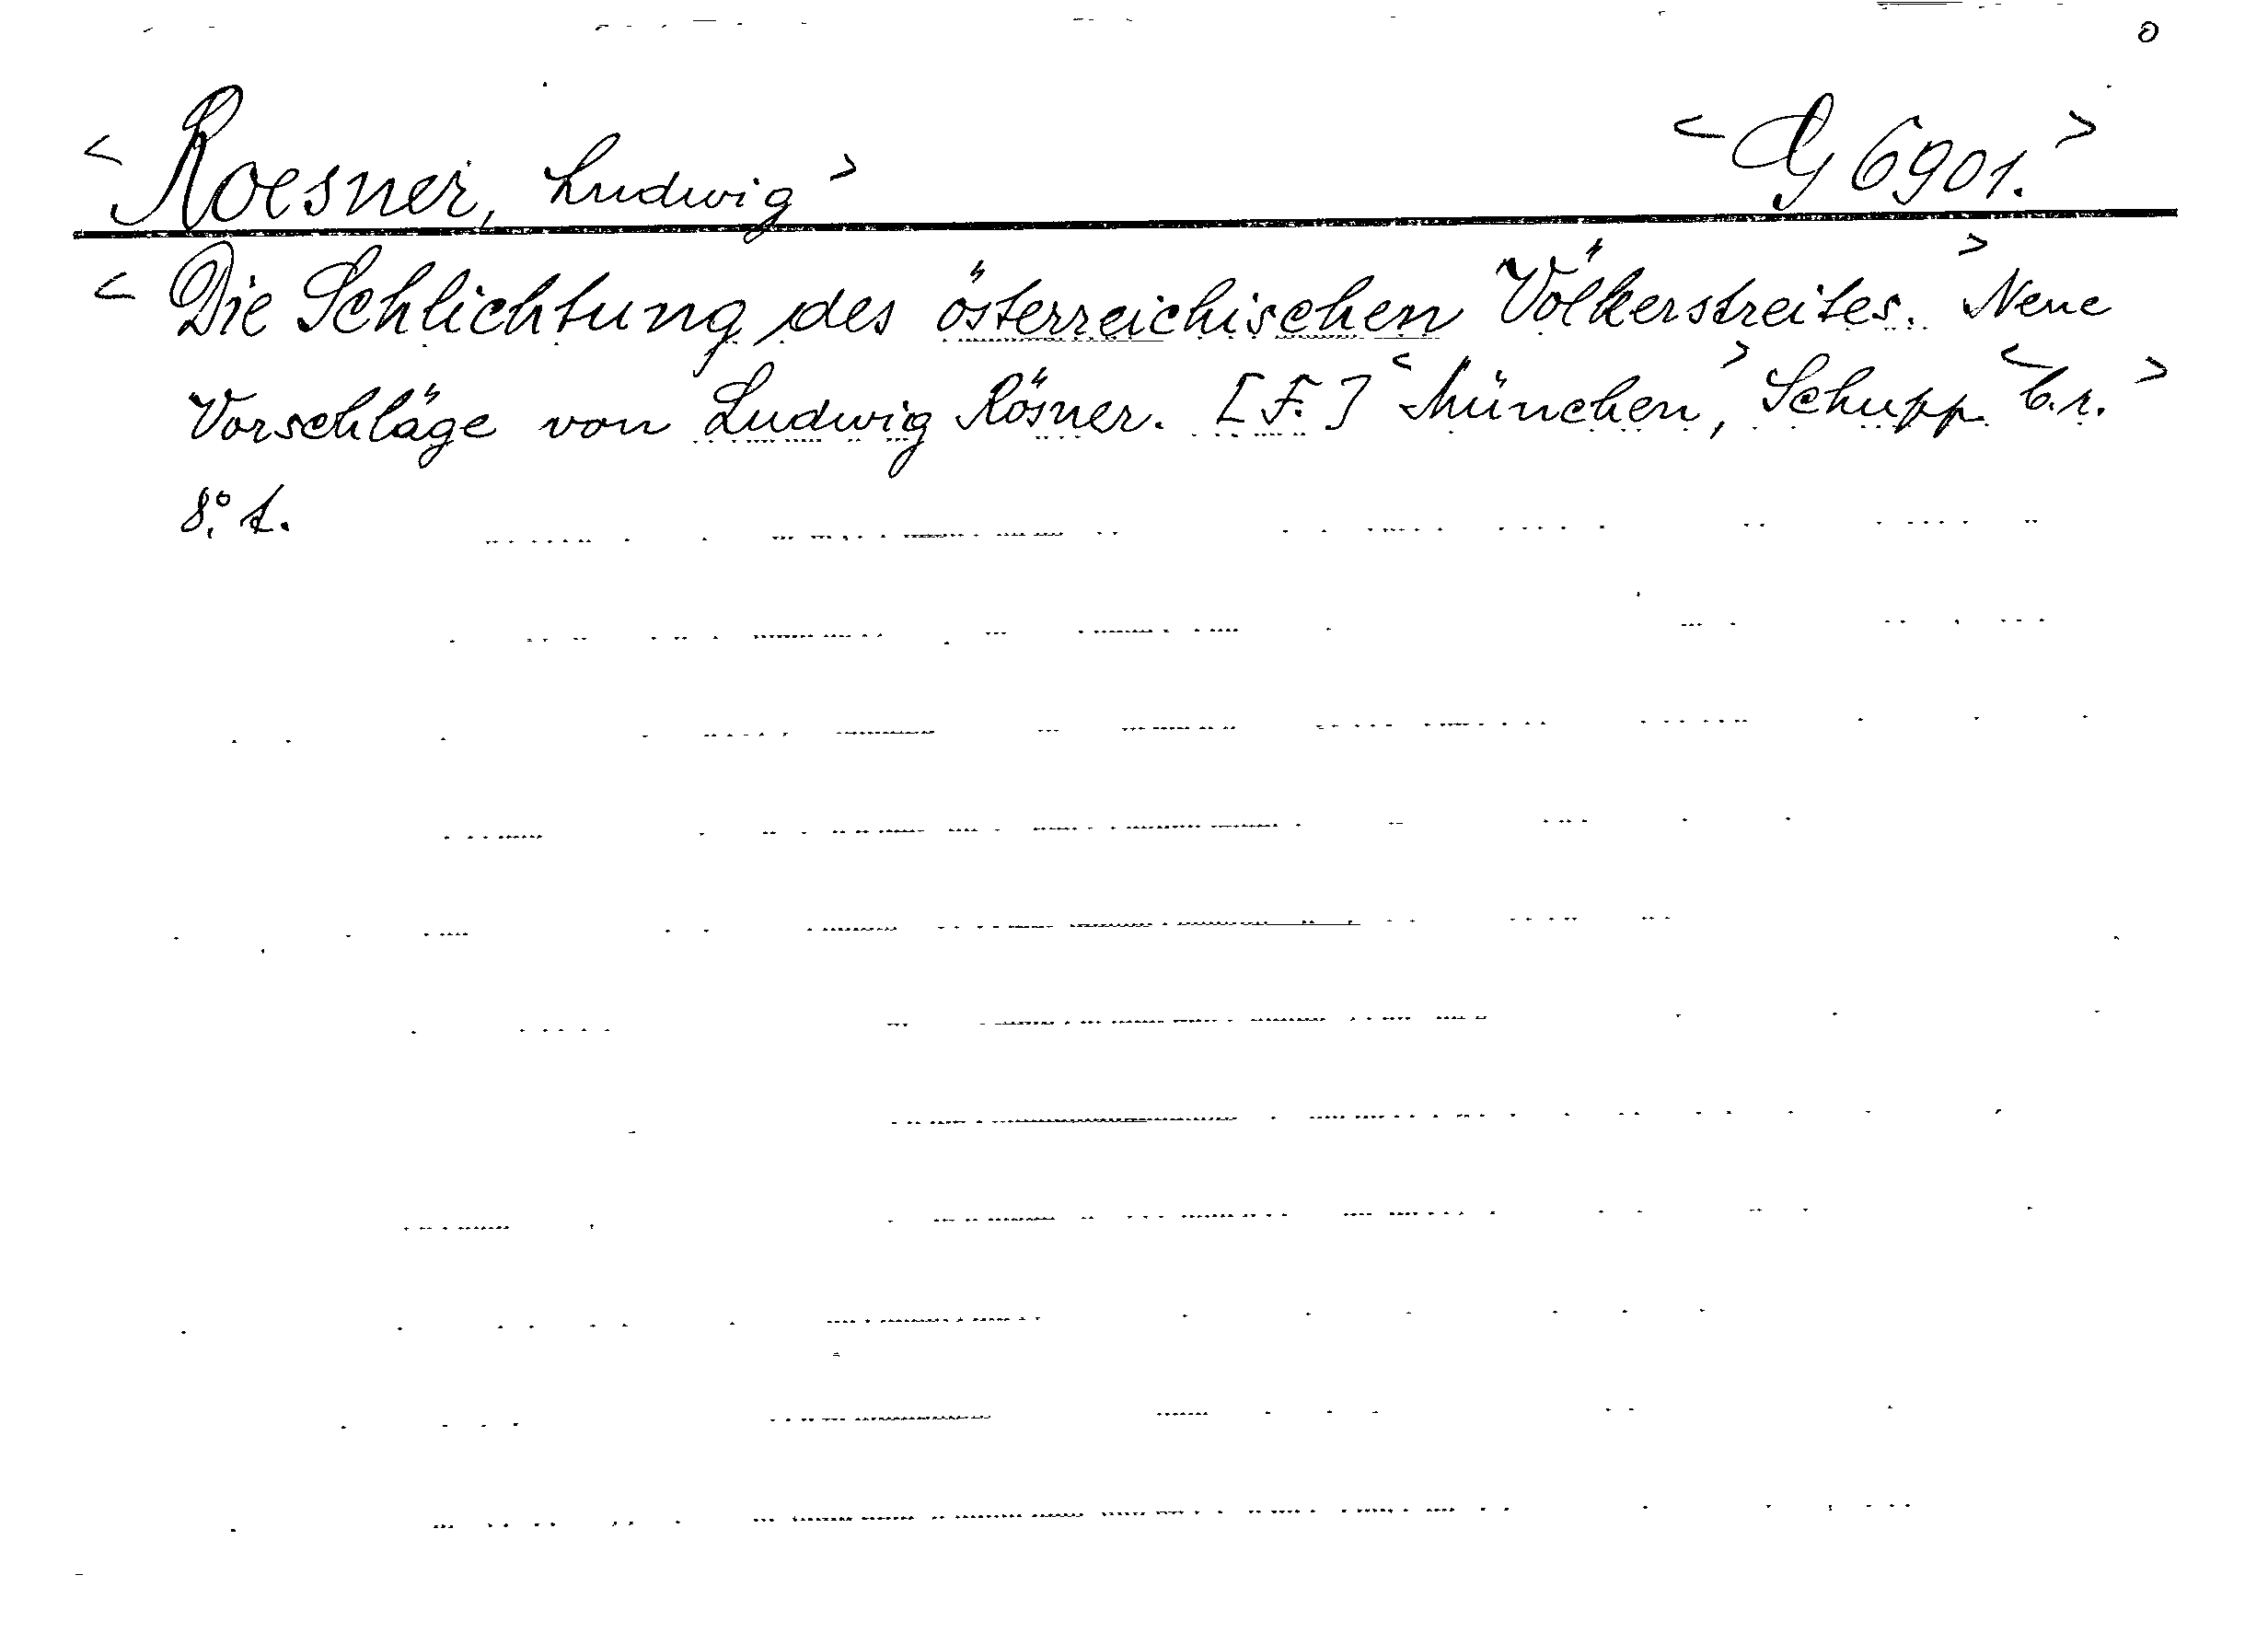 o
< Roesner, Ludwig > < G 6901. >
< Die Schlichtung des österreichischen Völkerstreites. > Neue
Vorschläge von Ludwig Rösner. [F.] < München, > Schupp. < b.r. >
8°. t.